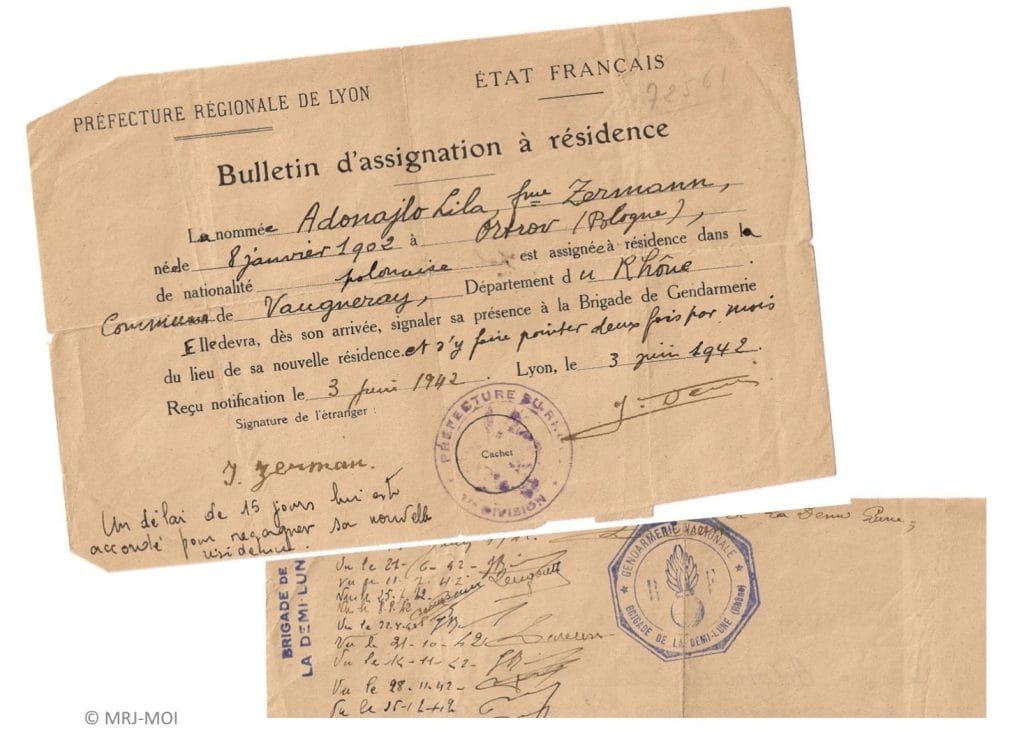 PRÉFECTURE RÉGIONALE DE LYON
ÉTAT FRANÇAIS
72561
Bulletin d'assignation à résidence
La nommée Adonajlo Lila, fme Zermann,
née le 8 janvier 1902 à Ostrov (Pologne),
de nationalité polonaise est assignée à résidence dans la
Commune de Vaugneray, Département du Rhône.
Elle devra, dès son arrivée, signaler sa présence à la Brigade de Gendarmerie
du lieu de sa nouvelle résidence. et s'y faire pointer deux fois par mois
Reçu notification le 3 juin 1942. Lyon, le 3 juin 1942.
Signature de l'étranger :
PRÉFECTURE DU
Cachet
DIVISION
J. Zerman.
Un délai de 15 jours lui est
accordé pour regagner sa nouvelle
résidence.
de la Demi Lune,
BRIGADE DE
LA DEMI-LUN
Vu le 27-6-42
Vu le 11-7-42
Vu le 25-7-42
Vu le 21-10-42
Vu le 14-11-42
Vu le 28-11-42
Vu le 15-12-42
GENDARMERIE NATIONALE
BRIGADE DE LA DEMI-LUNE (Rhône)
© MRJ-MOI